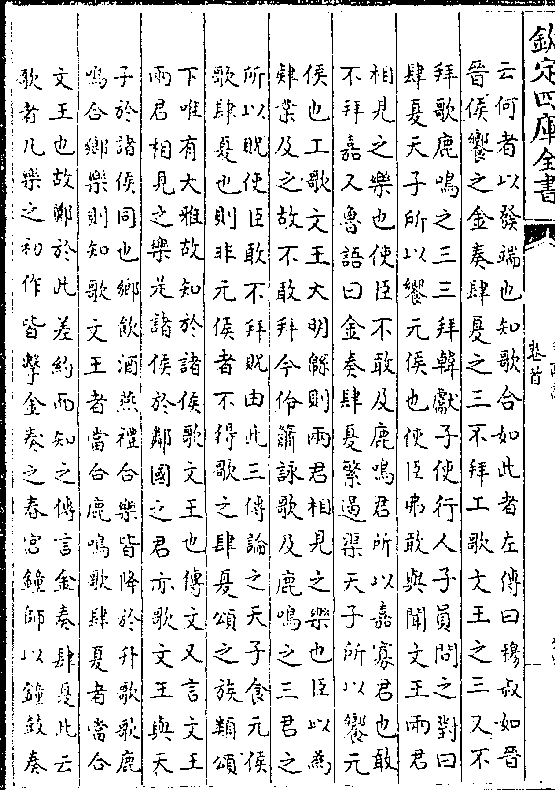 欽定四庫全書
卷首
云何者以發端也知歌合如此者左傳曰穆叔如晉
晉侯饗之金奏肆夏之三不拜工歌文王之三又不
拜歌鹿鳴之三三拜韓獻子使行人子員問之對曰
肆夏天子所以饗元侯也使臣弗敢與聞文王兩君
相見之樂也使臣不敢及鹿鳴君所以嘉寡君也敢
不拜嘉又魯語曰金奏肆夏繁遏渠天子所以饗元
侯也工歌文王大明緜則兩君相見之樂也臣以為
肄業及之故不敢拜今伶簫詠歌及鹿鳴之三君之
所以貺使臣敢不拜貺由此三傳論之天子食元侯
歌肆夏也則非元侯者不得歌之肆夏頌之族類頌
下唯有大雅故知於諸侯歌文王也傳文又言文王
兩君相見之樂是諸侯於鄰國之君亦歌文王與天
子於諸侯同也鄉飲酒燕禮合樂皆降於升歌歌鹿
鳴合鄉樂則知歌文王者當合鹿鳴歌肆夏者當合
文王也故鄭於此差約而知之傳言金奏肆夏此云
歌者凡樂之初作皆擊金奏之春官鐘師以鐘鼓奏